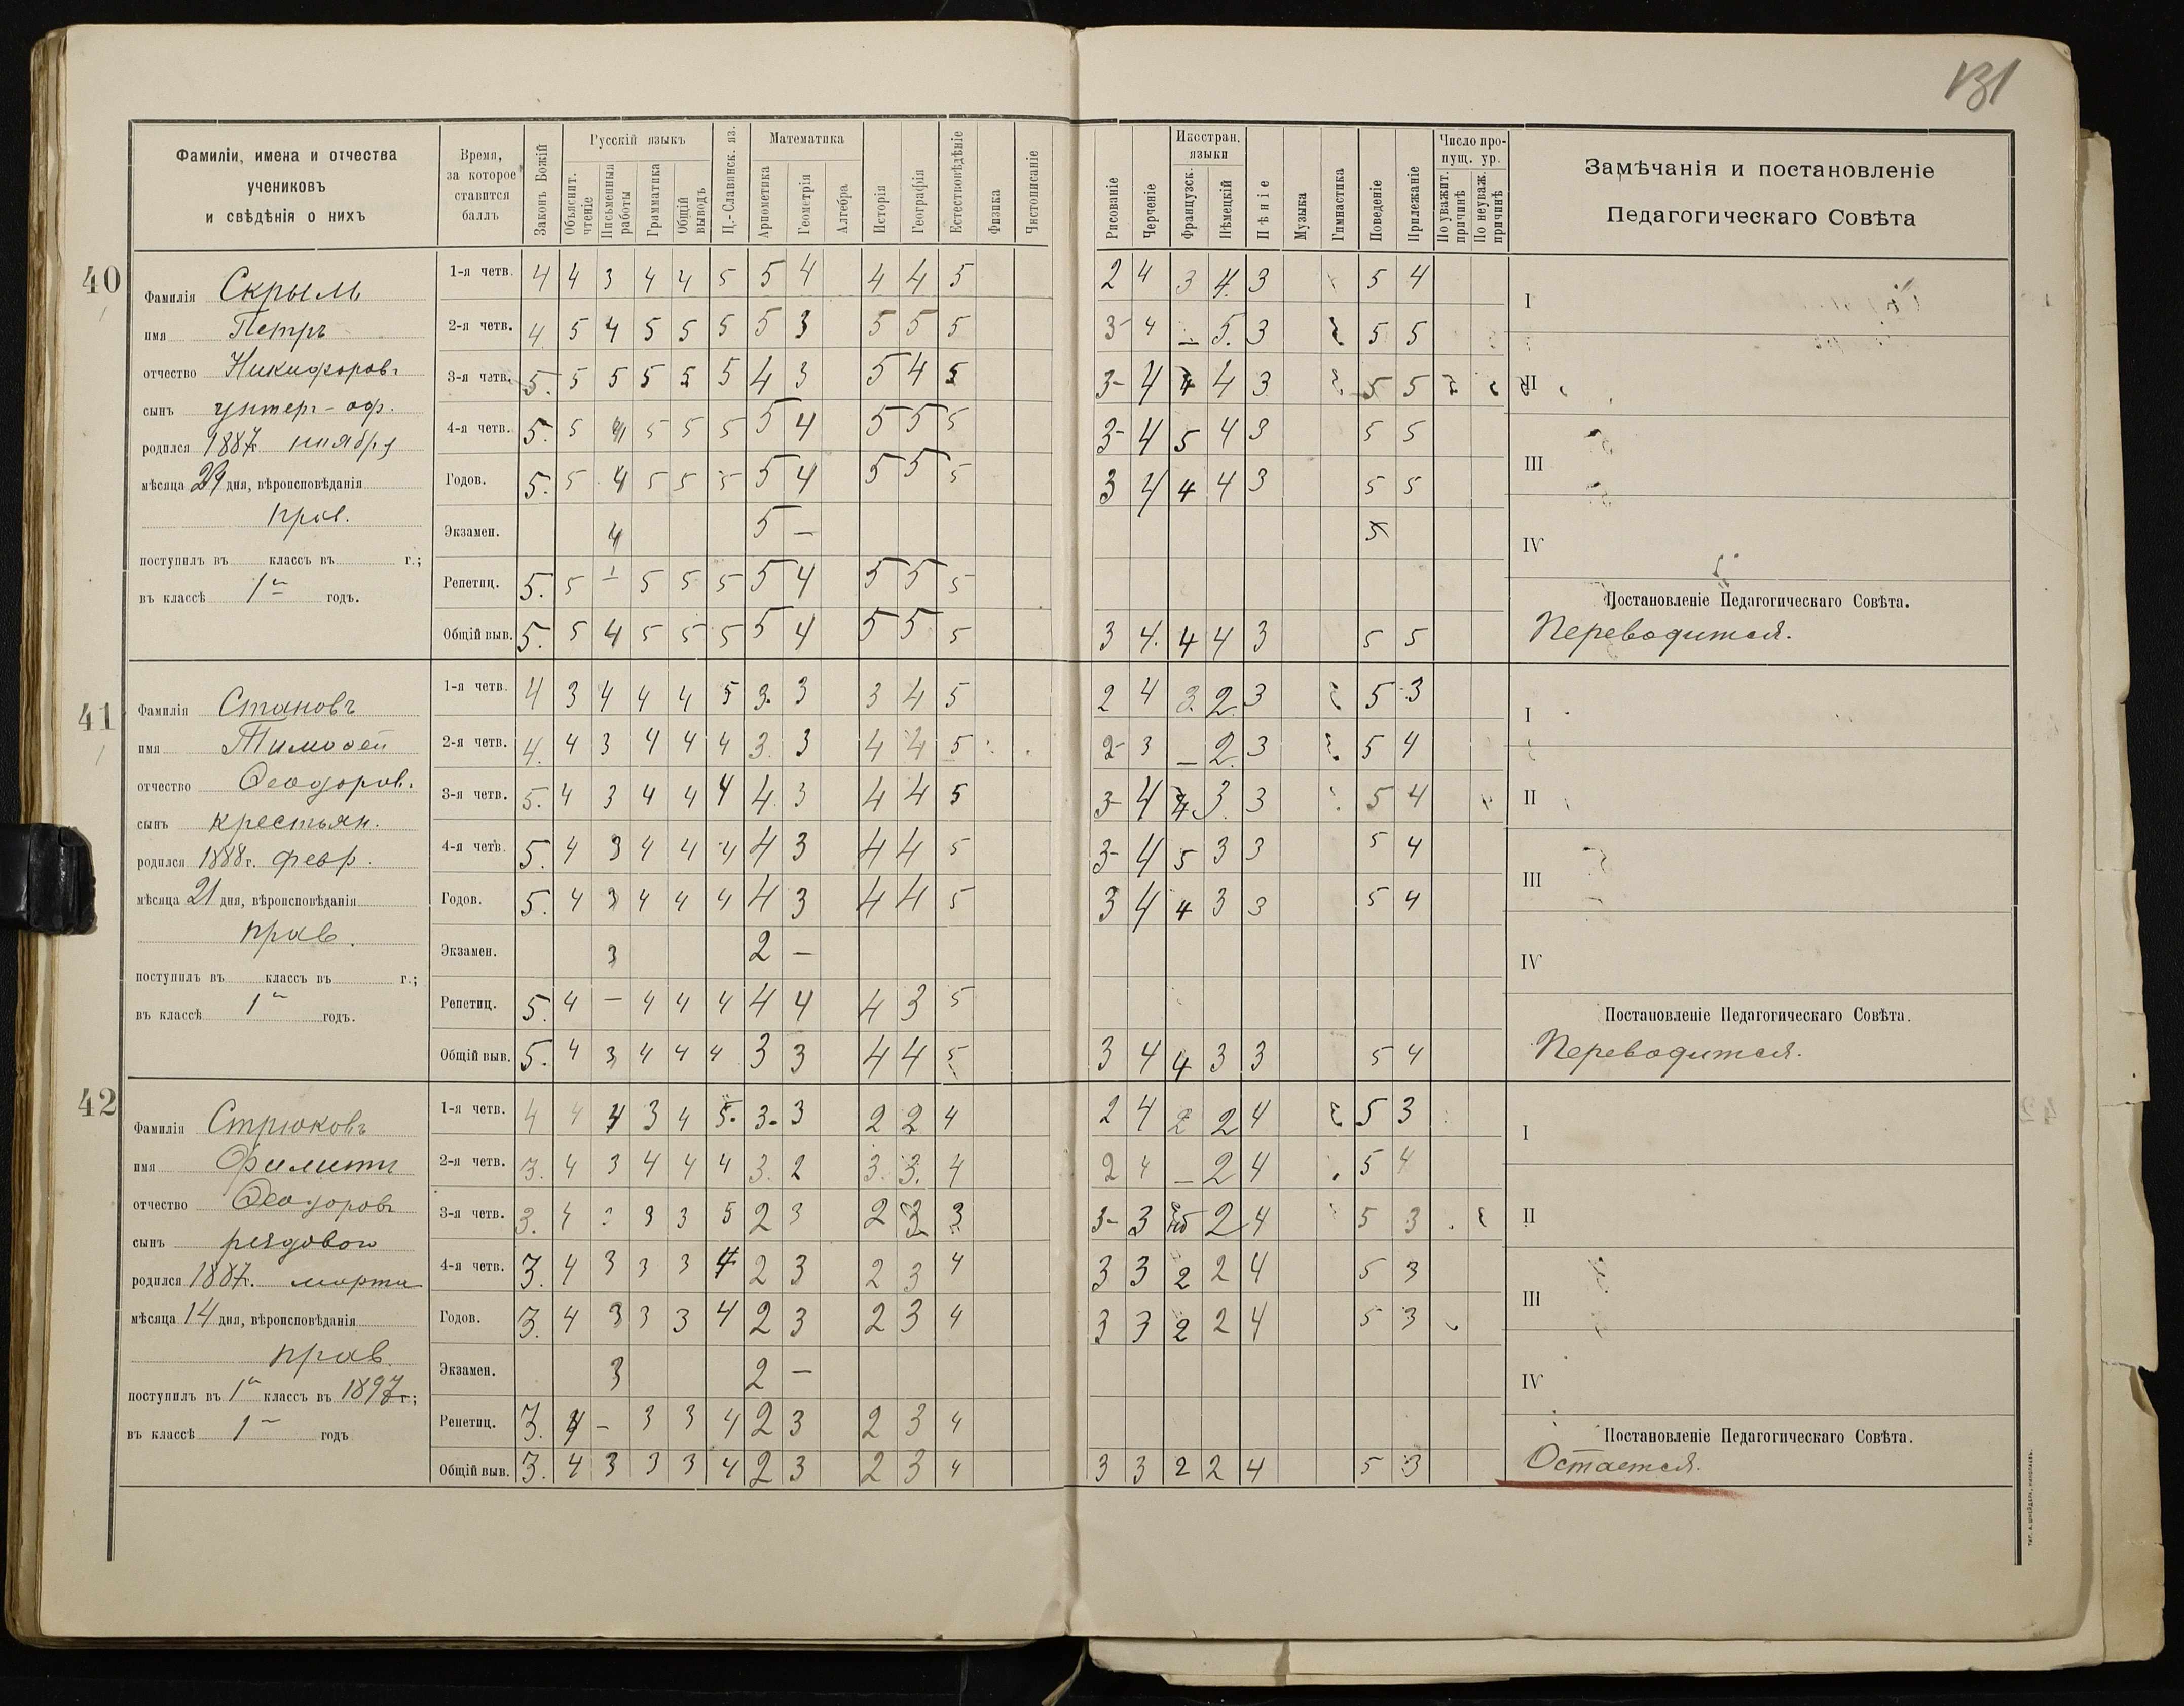 131
Фамиліи, имена и отчества
учениковъ
и свѣдѣнія о нихъ
Время,
за которое
ставится
баллъ
Законъ Божій
Русскій языкъ
Объяснит. чтеніе
Письменныя работы
Грамматика
Общій выводъ
Ц.-Славянск. яз.
Математика
Ариѳметика
Геометрія
Алгебра
Исторія
Географія
Естествовѣдѣніе
Физика
Чистописаніе
Рисованіе
Черченіе
Иностран. языки
Французск.
Нѣмецкій
Пѣніе
Музыка
Гимнастика
Поведеніе
Прилежаніе
Число пропущ. ур.
По уважит. причинѣ
По неуваж. причинѣ
Замѣчанія и постановленіе
Педагогическаго Совѣта
40
Фамилія Скрыль
имя Петръ
отчество Никифоров.
сынъ унтер-оф.
родился 1887 г. ноября
мѣсяца 29 дня, вѣроисповѣданія
прав.
поступилъ въ классъ въ г.;
въ классѣ 1й годъ.
1-я четв. 4 4 3 4 4 5 5 4 4 4 5 2 4 3 4. 3 5 4
2-я четв. 4. 5 4 5 5 5 5 3 5 5 5 3- 4 — 5. 3 5 5
3-я четв. 5. 5 5 5 5 5 4 3 5 4 5 3- 4 4 4 3 5 5
4-я четв. 5. 5 4 5 5 5 5 4 5 5 5 3- 4 5 4 3 5 5
Годов. 5. 5 4 5 5 5 5 4 5 5 5 3 4 4 4 3 5 5
Экзамен. 4 5 — 5
Репетиц. 5. 5 — 5 5 5 5 4 5 5 5
Общій выв. 5. 5 4 5 5 5 5 4 5 5 5 3 4. 4 4 3 5 5
I
II
III
IV
Постановленіе Педагогическаго Совѣта.
Переводится.
41
Фамилія Становъ
имя Тимоѳей
отчество Ѳеодоров.
сынъ крестьян.
родился 1888 г. февр.
мѣсяца 21 дня, вѣроисповѣданія
прав.
поступилъ въ классъ въ г.;
въ классѣ 1й годъ.
1-я четв. 4 3 4 4 4 5 3. 3 3 4 5 2 4 3. 2. 3 5 3
2-я четв. 4. 4 3 4 4 4 3. 3 4 4 5 2- 3 — 2. 3 5 4
3-я четв. 5. 4 3 4 4 4 4. 3 4 4 5 3- 4 4 3. 3 5 4
4-я четв. 5. 4 3 4 4 4 4 3 4 4 5 3- 4 5 3 3 5 4
Годов. 5. 4 3 4 4 4 4 3 4 4 5 3 4 4 3 3 5 4
Экзамен. 3 2 —
Репетиц. 5. 4 — 4 4 4 4 4 4 3 5
Общій выв. 5. 4 3 4 4 4 3 3 4 4 5 3 4 4 3 3 5 4
I
II
III
IV
Постановленіе Педагогическаго Совѣта.
Переводится.
42
Фамилія Стрюковъ
имя Филиппъ
отчество Ѳеодоровъ
сынъ рядового
родился 1887 г. марта
мѣсяца 14 дня, вѣроисповѣданія
прав.
поступилъ въ 1й классъ въ 1897 г.;
въ классѣ 1й годъ
1-я четв. 4 4 4 3 4 5. 3. 3 2 2 4 2 4 2 2 4 5 3
2-я четв. 3. 4 3 4 4 4 3. 2 3. 3. 4 2 4 — 2 4 5 4
3-я четв. 3. 4 3 3 3 5 2 3 2 3 3 3- 3 2 4 5 3
4-я четв. 3. 4 3 3 3 4 2 3 2 3 4 3 3 2 2 4 5 3
Годов. 3. 4 3 3 3 4 2 3 2 3 4 3 3 2 2 4 5 3
Экзамен. 3 2 —
Репетиц. 3. 4 — 3 3 4 2 3 2 3 4
Общій выв. 3. 4 3 3 3 4 2 3 2 3 4 3 3 2 2 4 5 3
I
II
III
IV
Постановленіе Педагогическаго Совѣта.
Остается.